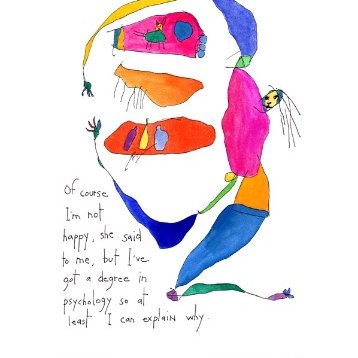 Of course
I'm not
happy, she said
to me, but I've
got a degree in
psychology so at
least I can explain why.